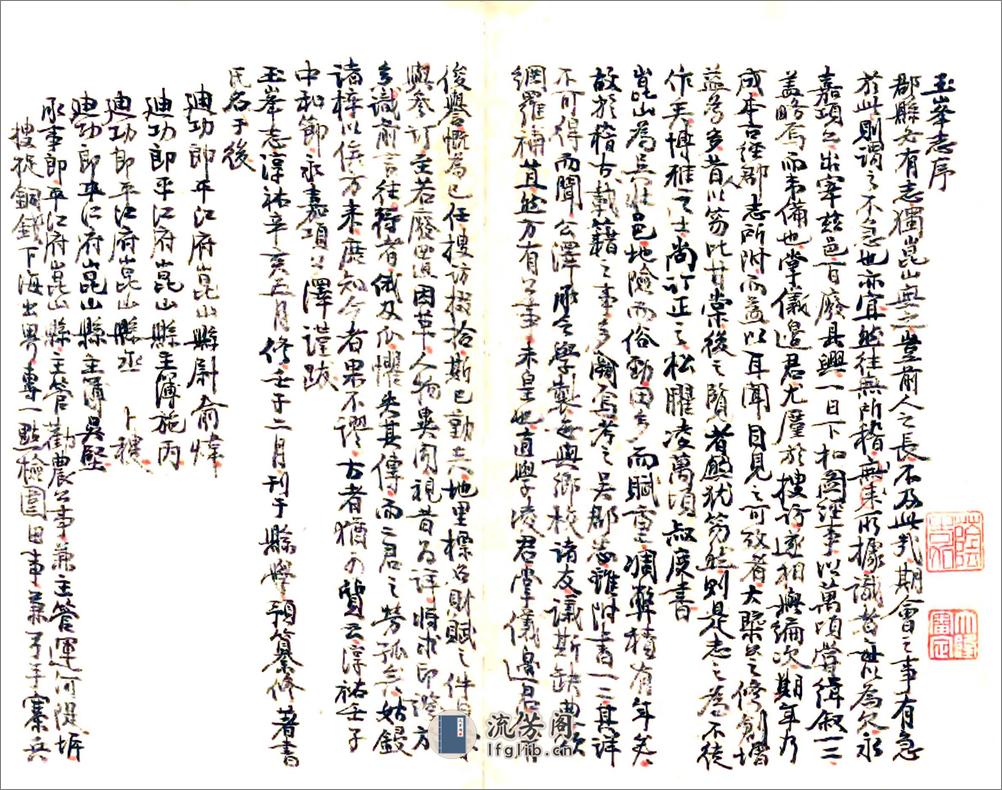 玉峯志序
郡縣必有志獨崑山無之豈前人之長不及此哉期會之事有急
於此則謂之不急也亦宜然往無所稽來無所據識者每以為欠永
嘉項公出宰茲邑百廢具興一日下和圖經事以萬頃嘗緝叙一二
蓋略焉而未備也掌儀邊君尤廑於搜訪遂相與編次期年乃
成本古經郡志所附而益以耳聞目見之可攷者大槩之修創增
益為多昔人以勿比甘棠後之覽者無犹勿然則是志之為不徒
作矣博雅之士尚訂正之松臞凌萬頃叔度書
崑山為吳壯邑地險而俗勁田多而賦重凋弊積有年矣
故於稽古載籍之事多闕焉考之吳郡志雖附書一二其詳
不可得而聞公澤承乏學製每與鄉校諸友議斯缺典欲
網羅補苴然方有公事未皇也直學凌君掌儀邊君
俊興慨為已任搜訪掇拾斯已勤矣地里標名財賦之件
與參訂之若廢置因革人物異同視昔為詳將求印證於
多識前言往行者俄及瓜懼失其傳而二君之勞孤矣姑鋟
諸梓以俟方來庶知今者果不謬古者猶可質云淳祐壬子
中和節永嘉項公澤謹跋
玉峯志淳祐辛亥五月修壬子二月刊于縣學預纂修著書
氏名于後
迪功郎平江府崑山縣尉俞煒
迪功郎平江府崑山縣主簿施丙
迪功郎平江府崑山縣丞卜稷
迪功郎平江府崑山縣主簿吳堅
承事郎平江府崑山縣主管勸農公事兼主管運河隄埧
搜捉銅錢下海出界專一點檢圍田事兼弓手寨兵
流芳阁
lfglib.cn